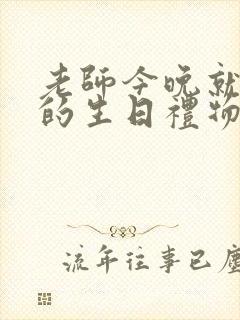 老師今晚就
的生日禮物
流年往事已塵